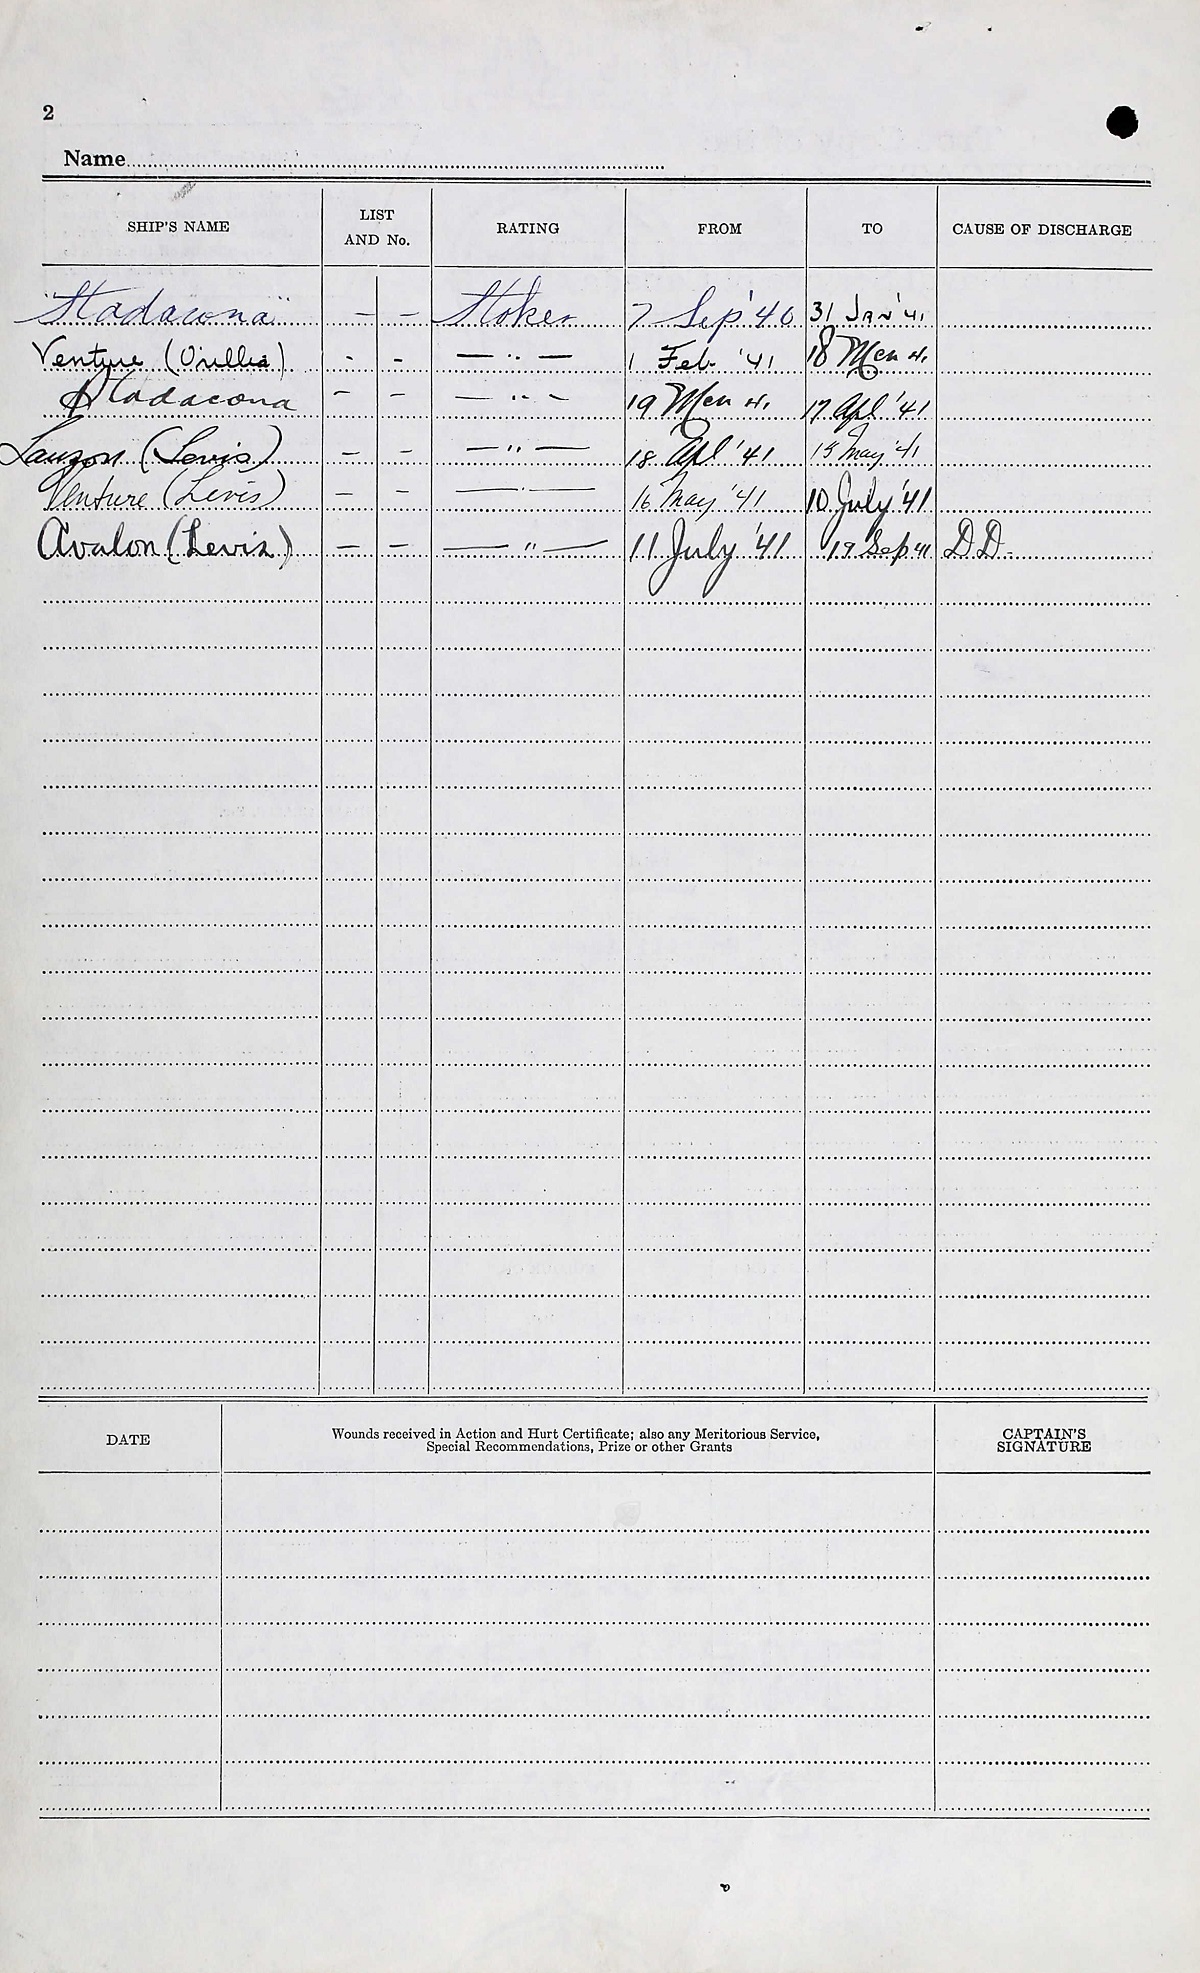 2
Name
SHIP'S NAME LIST AND No. RATING FROM TO CAUSE OF DISCHARGE
"Stadacona" - - Stoker 7 Sep '40 31 JAN '41
Venture (Orillia) - - — " — 1 Feb '41 18 Mch 41
Stadacona - - — " — 19 Mch 41 17 Apl '41
Lauzon (Levis) - - — " — 18 Apl '41 15 May '41
Venture (Levis) - - — " — 16 May '41 10 July '41
Avalon (Levis) - - — " — 11 July '41 19 Sep 41 D.D.
DATE Wounds received in Action and Hurt Certificate; also any Meritorious Service, Special Recommendations, Prize or other Grants CAPTAIN'S SIGNATURE